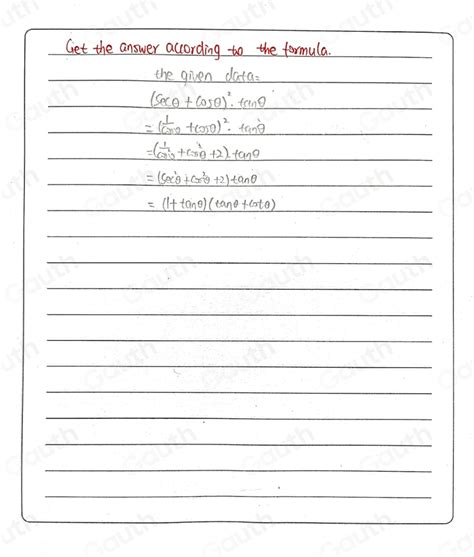 Get the answer according to the formula.
the given data:
(secθ + cosθ)². tanθ
= (1/cosθ + cosθ)². tanθ
= (1/cos²θ + cos²θ + 2). tanθ
= (sec²θ + cos²θ + 2) tanθ
= (1 + tanθ) (tanθ + cotθ)
Gauth